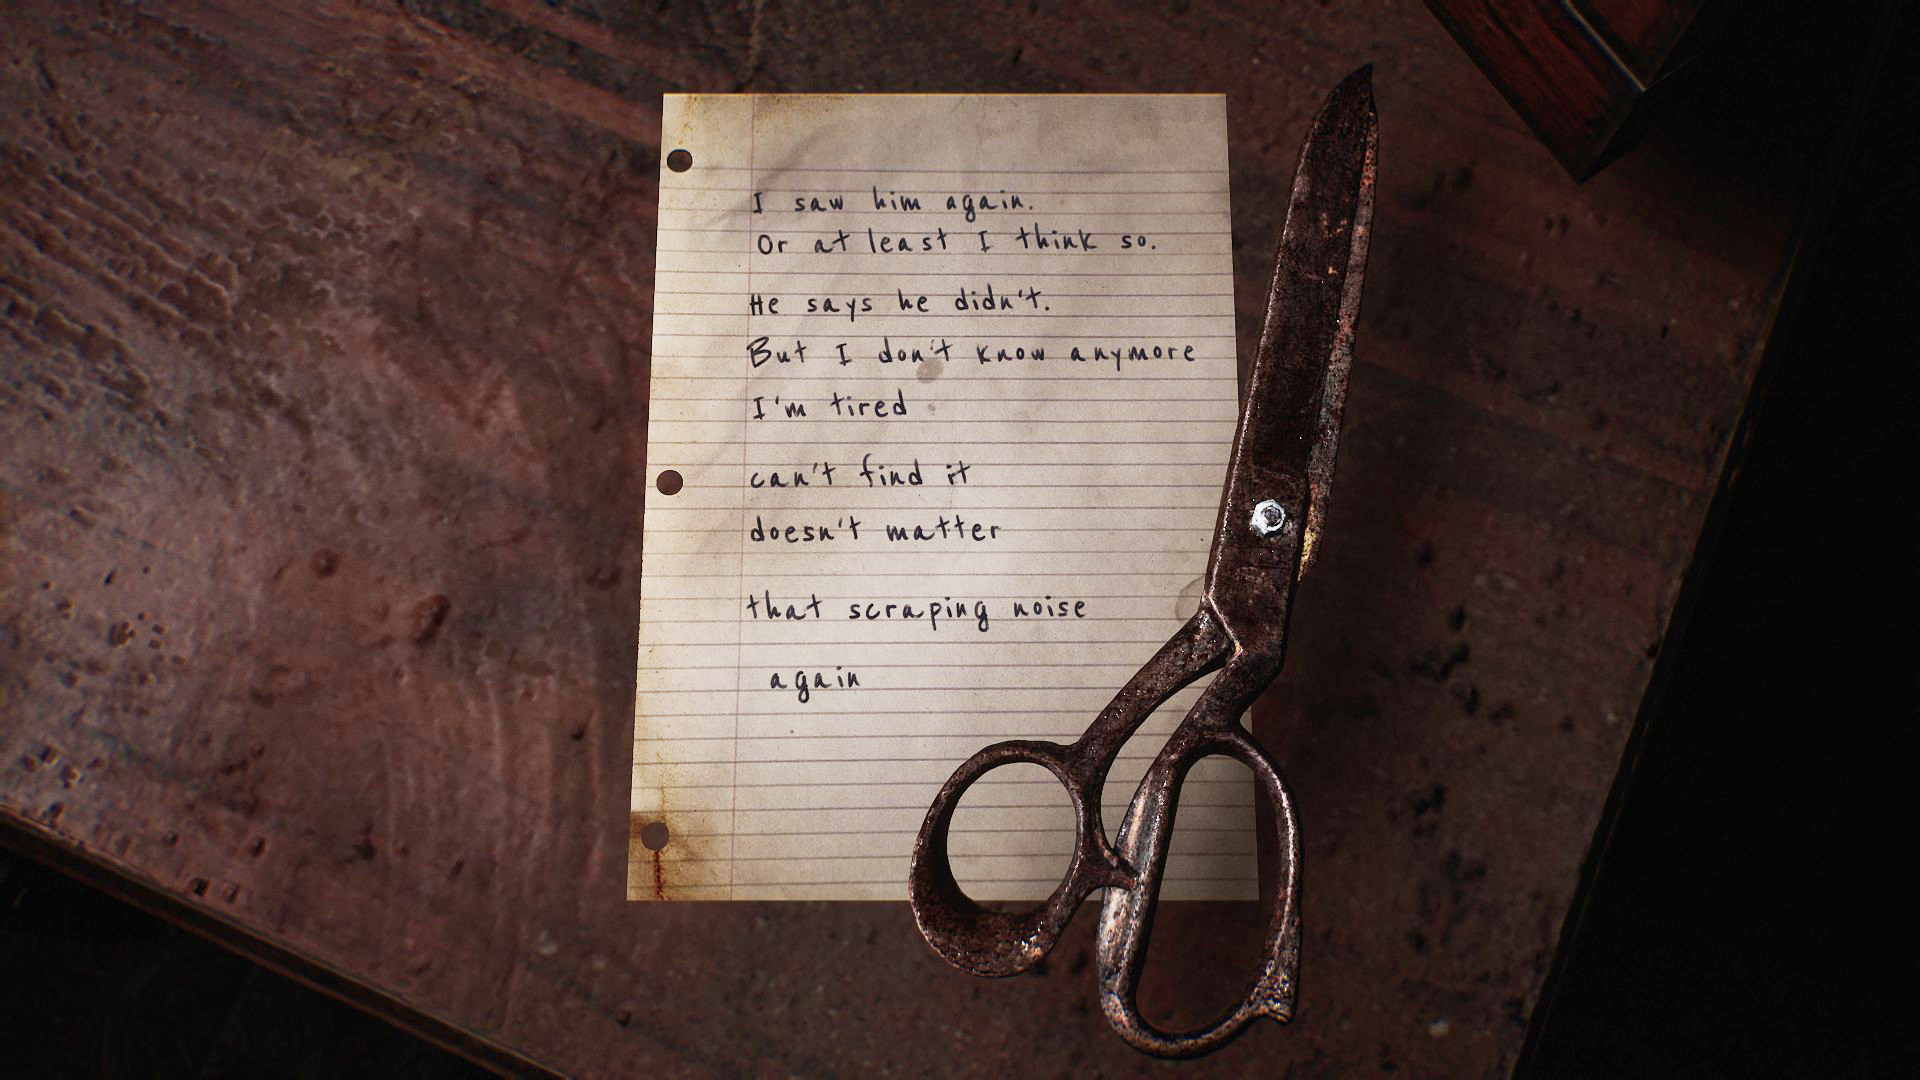 I saw him again.
Or at least I think so.
He says he didn't.
But I don't know anymore
I'm tired
can't find it
doesn't matter
that scraping noise
again